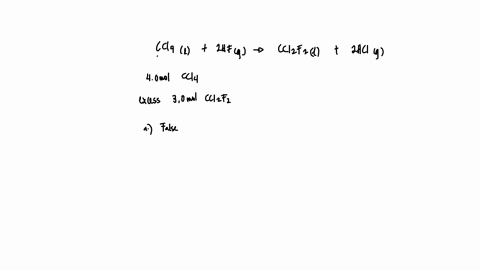 CCl4 (l) + 2HF(g) → CCl2F2(l) + 2HCl(g)
4.0mol CCl4
excess 3.0mol CCl2F2
a) False